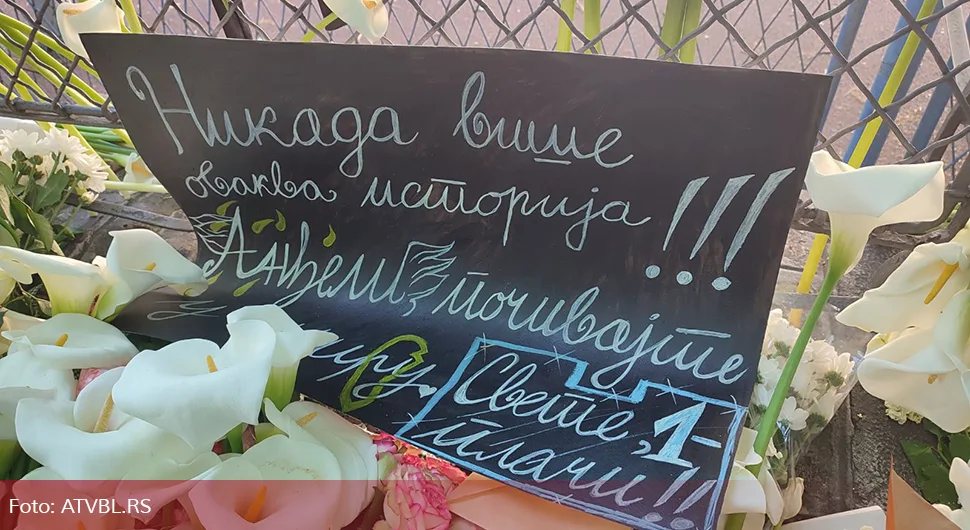 Никада више
оваква историја !!!
Анђели, почивајте
миру.
Свете, 1-
плачи!!
Foto: ATVBL.RS